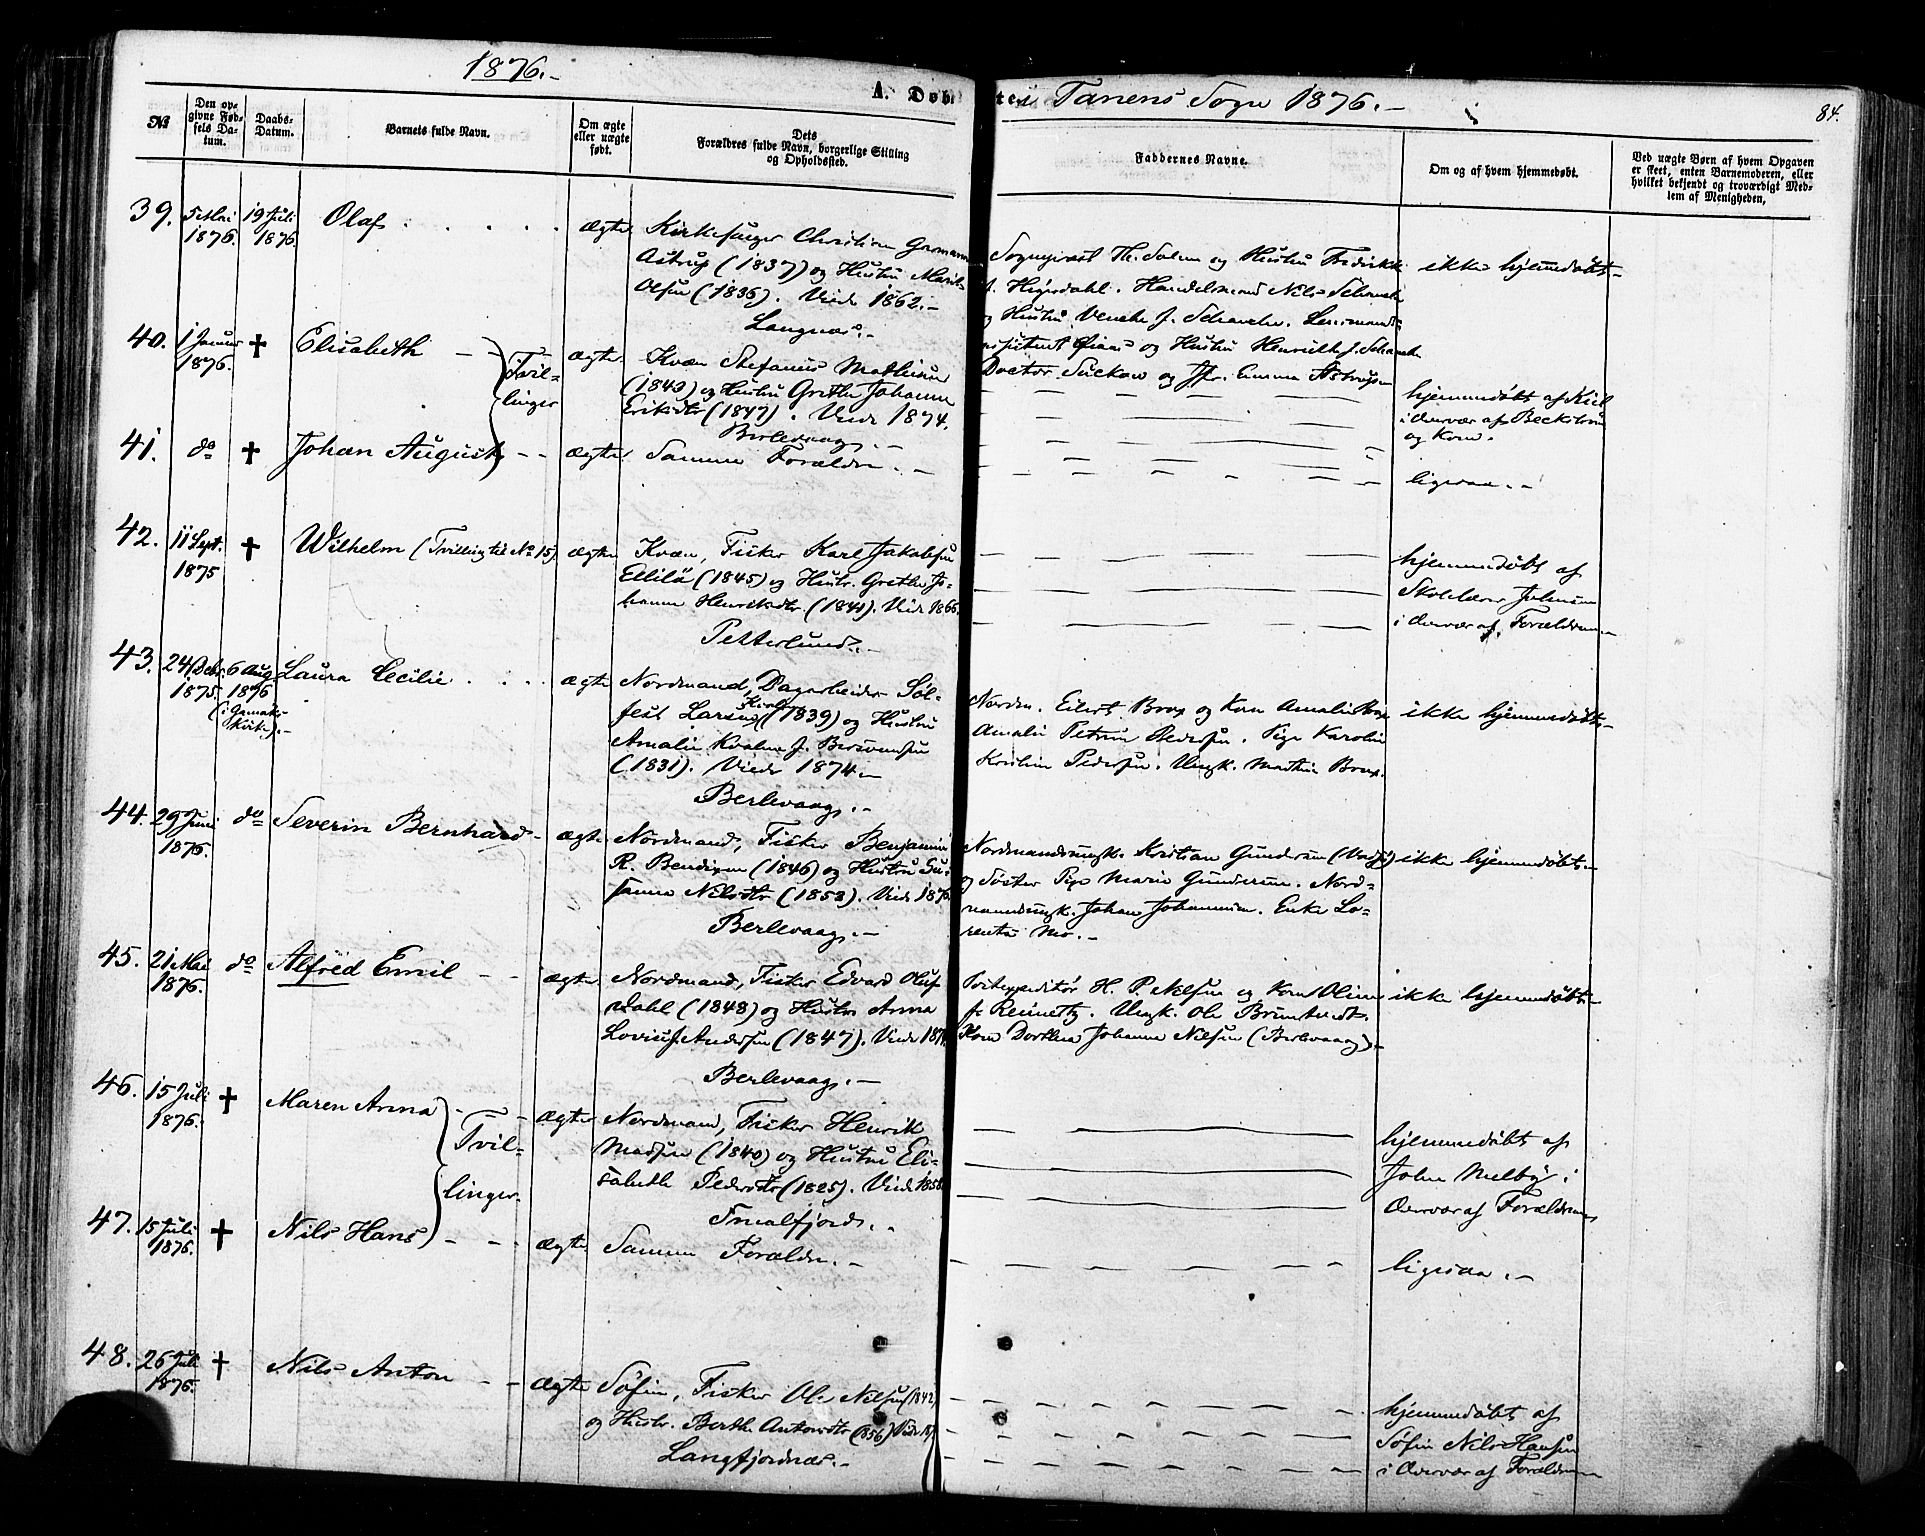 1876.-
A. Døb
tes. Tanens Sogn 1876.-
84.
No
Den op-
givne Fød-
sels Da-
tum.
Daabs-
Datum.
Barnets fulde Navn.
Om ægte
eller uægte
født.
Dets
Forældres fulde Navn, borgerlige Stilling
og Opholdssted.
Faddernes Navne.
Om og af hvem hjemmedøbt.
Ved uægte Børn af hvem Opgaven
er skeet, enten Barnemoderen, eller
hvilket bekjendt og troværdigt Med-
lem af Menigheden.
39. 5 Mai 19 Juli Olaf . . . . . ægte
1876. 1876.
Kirkesanger Christian
Astrup (1837) og Hustru
Olsen (1836). Viede 1862.-
Langnæs.-
Sogneprest Th. Solem og Hustru Fredrikke
f. Heyerdahl. Handelsmand Nils Schanche
og Hustru Wenche f. Schanche.
og Hustru f. Schanche
Doctor Suckow og Jfr. Emma Astrup
ikke hjemmedøbt-
40. 1 Januar † Elisabeth - - Tvil- ægte
1876. linger
Kvæn Stefanus Mathisen
(1843) og Hustru Grethe Johanne
Eriksdtr (1847). Viede 1874.
Berlevaag.-
hjemmedøbt af
i Overvær af
og Kone.
41. do † Johan August - - ægte Samme Forældre.- ligesaa.-
42. 11 Sept. † Wilhelm (Tvilling til No 15) ægte
1875
Kvæn, Fisker Karl Jakobsen
(1845) og Hustr. Grethe Jo-
hanne Henriksdtr (1841). Viede 1866.
Petterlund.-
hjemmedøbt af
Skolelærer Johnsen
i Overvær af Forældrene-
43. 24 Debr. 6 Aug. Laura Cecilie . . . ægte
1875. 1876
(i Gamvik
Kirke).-
Nordmand, Dagarbeider Søl-
fest Larsen (1839) og Hustru
Amalie f.
(1831). Viede 1874.-
Berlevaag.-
Nordm. Eilert Brox og Kone Amalie Brox
Amalie Petrine Pedersen. Pige Karoline
Kristine Pedersen. Ungk. Mathis Brox.
ikke hjemmedøbt-
44. 29 Juni do Severin Bernhard- ægte
1876.
Nordmand, Fisker Benjamin
R. Bendixen (1846) og Hustru Su-
sanna Nilsdtr (1853). Viede 1876.
Berlevaag.-
Nordmandsungk. Kristian Gundersen (Vadsø)
og Søster Pige Marie Gundersen. Nord-
mandsungk. Johan Johannesen. Enke Lo-
renta Mo.-
ikke hjemmedøbt-
45. 21 Mai do Alfred Emil - - ægte
1876.
Nordmand, Fisker Edvard Oluf
Dahl (1848) og Hustru Anna
Lovise f. Andersen (1847). Viede
Berlevaag.-
Postexpeditør H. P. Nilsen og Kone Oline
f. Ungk. Ole
Kone Dorthea Johanne Nilsen (Berlevaag).-
ikke hjemmedøbt-
46. 15 Juli † Maren Anna - - Tvil- ægte
1876. linger
Nordmand, Fisker Henrik
Madsen (1840) og Hustru Eli-
sabeth Pedersdtr (1825). Viede 1858.
Smalfjord.-
hjemmedøbt af
John Melby i
Overvær af Forældrene
47. 15 Juli † Nils Hans - - - ægte Samme Forældre.- ligesaa.-
1876.
48. 26 Juli † Nils Anton - - ægte
1876.
Søfin, Fisker Ole Nilsen (1842)
og Hustr. Berthe Antonsdtr (1856) Viede
Langfjordnæs.-
hjemmedøbt af
Søfin Nils Hansen
i Overvær af Forældrene